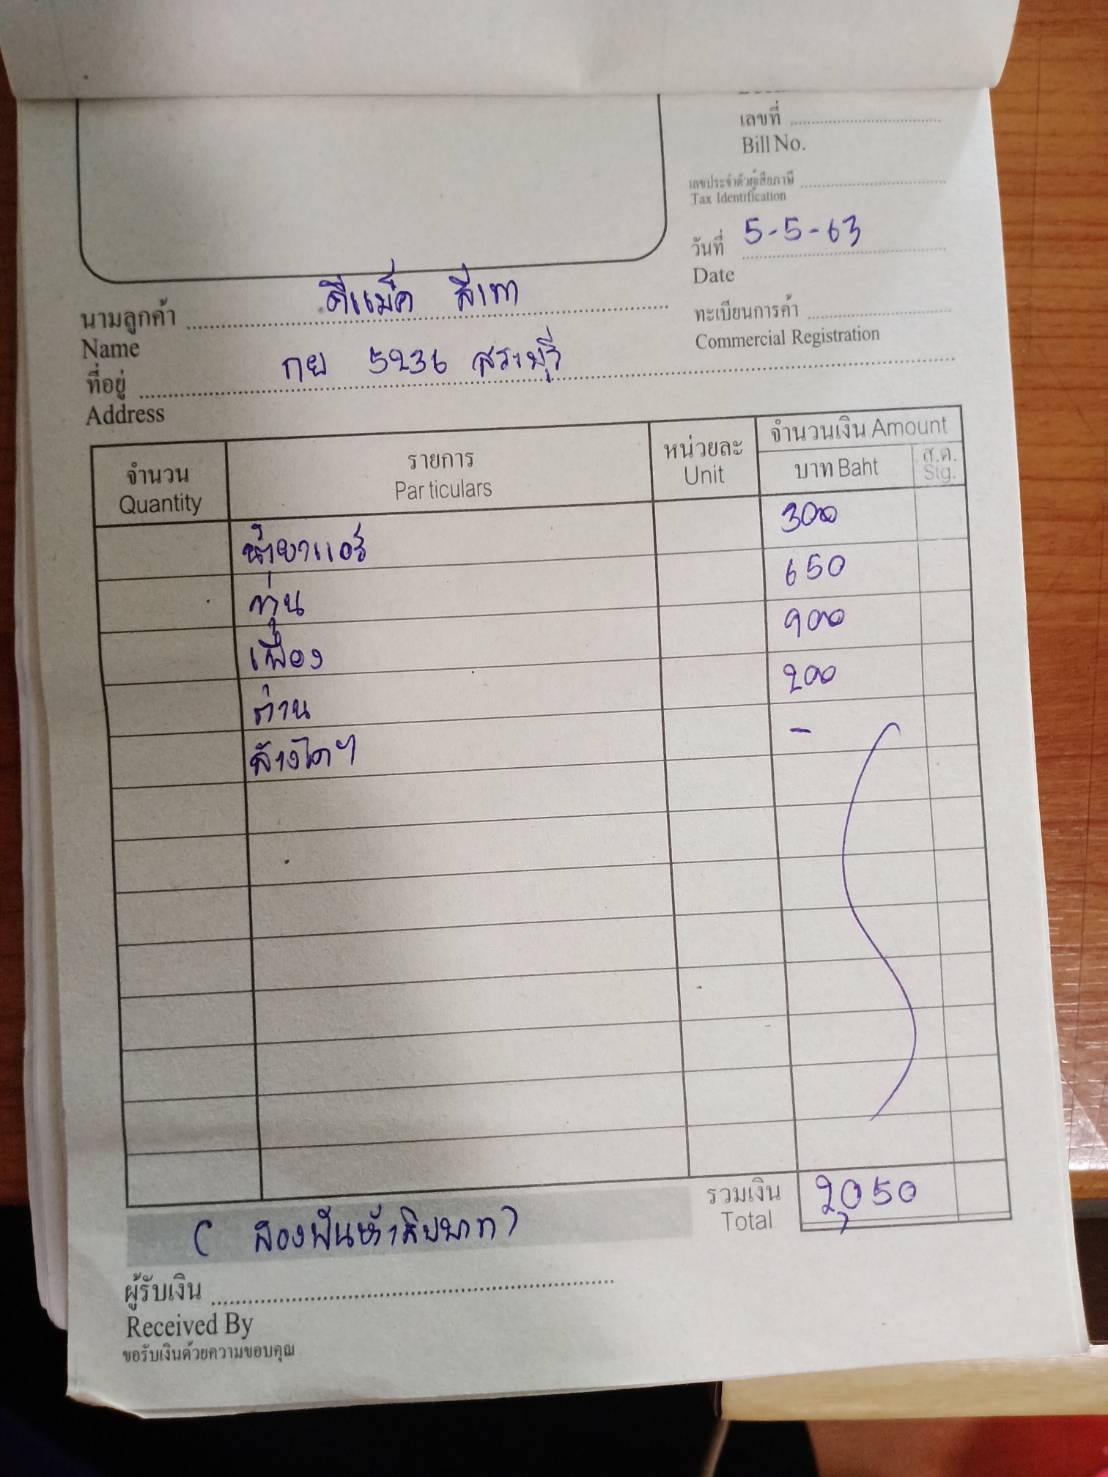 เลขที่
Bill No.
เลขประจำตัวผู้เสียภาษี
Tax Identification
วันที่ 5-5-63
Date
นามลูกค้า ดีแม็ค สีเทา
Name
ทะเบียนการค้า
Commercial Registration
ที่อยู่ กย 5236 สระบุรี
Address
จำนวน รายการ หน่วยละ จำนวนเงิน Amount
Quantity Particulars Unit บาท Baht ส.ต. Stg.
น้ำยาแอร์ 300
ทุ่น 650
เฟือง 900
ถ่าน 200
ล้างไดฯ -
รวมเงิน 2,050
Total
( สองพันห้าสิบบาท )
ผู้รับเงิน
Received By
ขอรับเงินด้วยความขอบคุณ